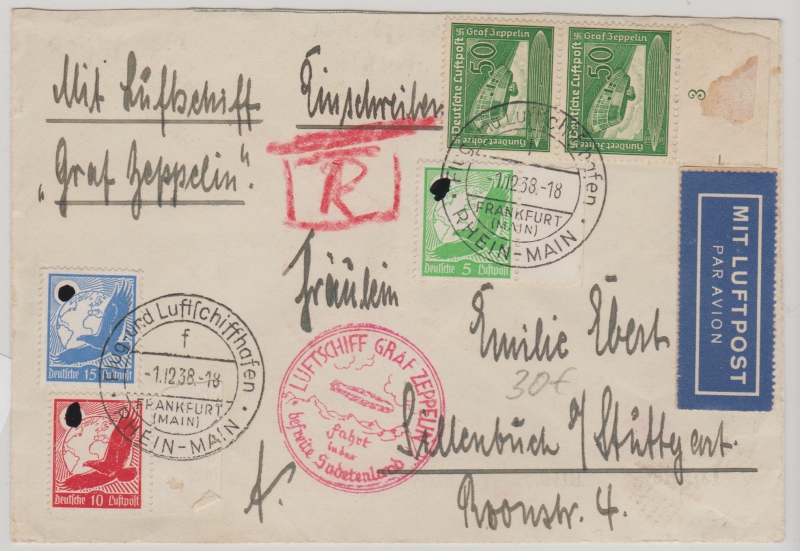 Mit Luftschiff
"Graf Zeppelin".
Einschreiben
R
50
Graf Zeppelin
Deutsche Luftpost
Hundert Jahre
50
Graf Zeppelin
Deutsche Luftpost
Hundert Jahre
8
Flug- und Luftschiffhafen
f
-1.12.38.-18
FRANKFURT
(MAIN)
RHEIN-MAIN
Deutsche 5 Luftpost
MIT LUFTPOST
PAR AVION
Fräulein
Emilie Ebert
30€
Sillenbuch b/Stuttgart.
Roonstr. 4.
Deutsche 15 Luftpost
Flug- und Luftschiffhafen
f
-1.12.38.-18
FRANKFURT
(MAIN)
RHEIN-MAIN
Deutsche 10 Luftpost
LUFTSCHIFF GRAF ZEPPELIN
Fahrt
in das
befreite Sudetenland